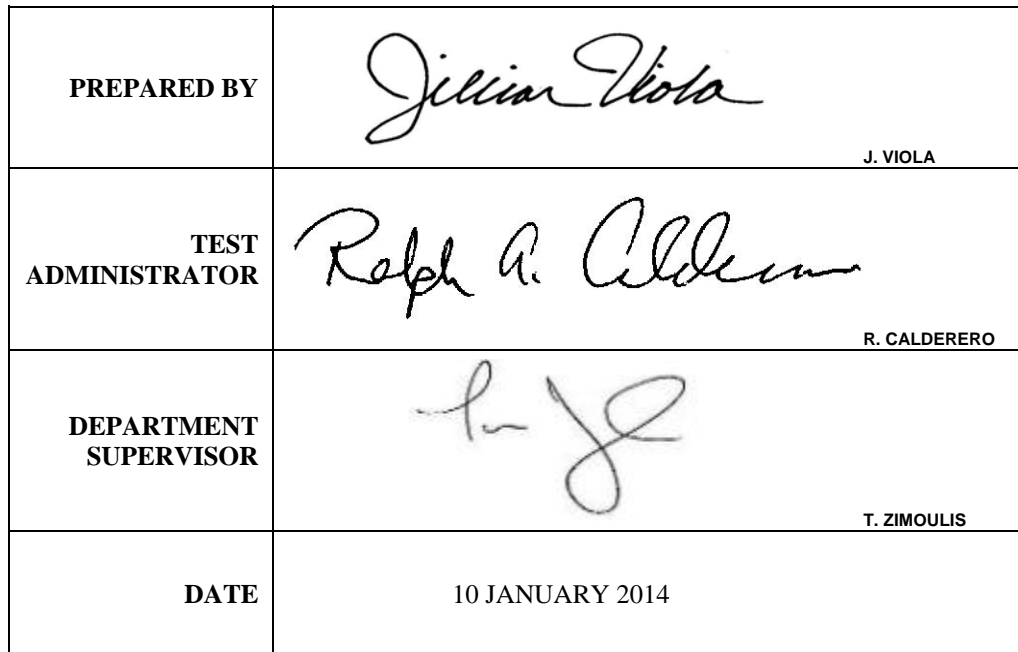 PREPARED BY
Jillian Viola
J. VIOLA
TEST
ADMINISTRATOR
Ralph A. Calderero
R. CALDERERO
DEPARTMENT
SUPERVISOR
T. ZIMOULIS
DATE
10 JANUARY 2014